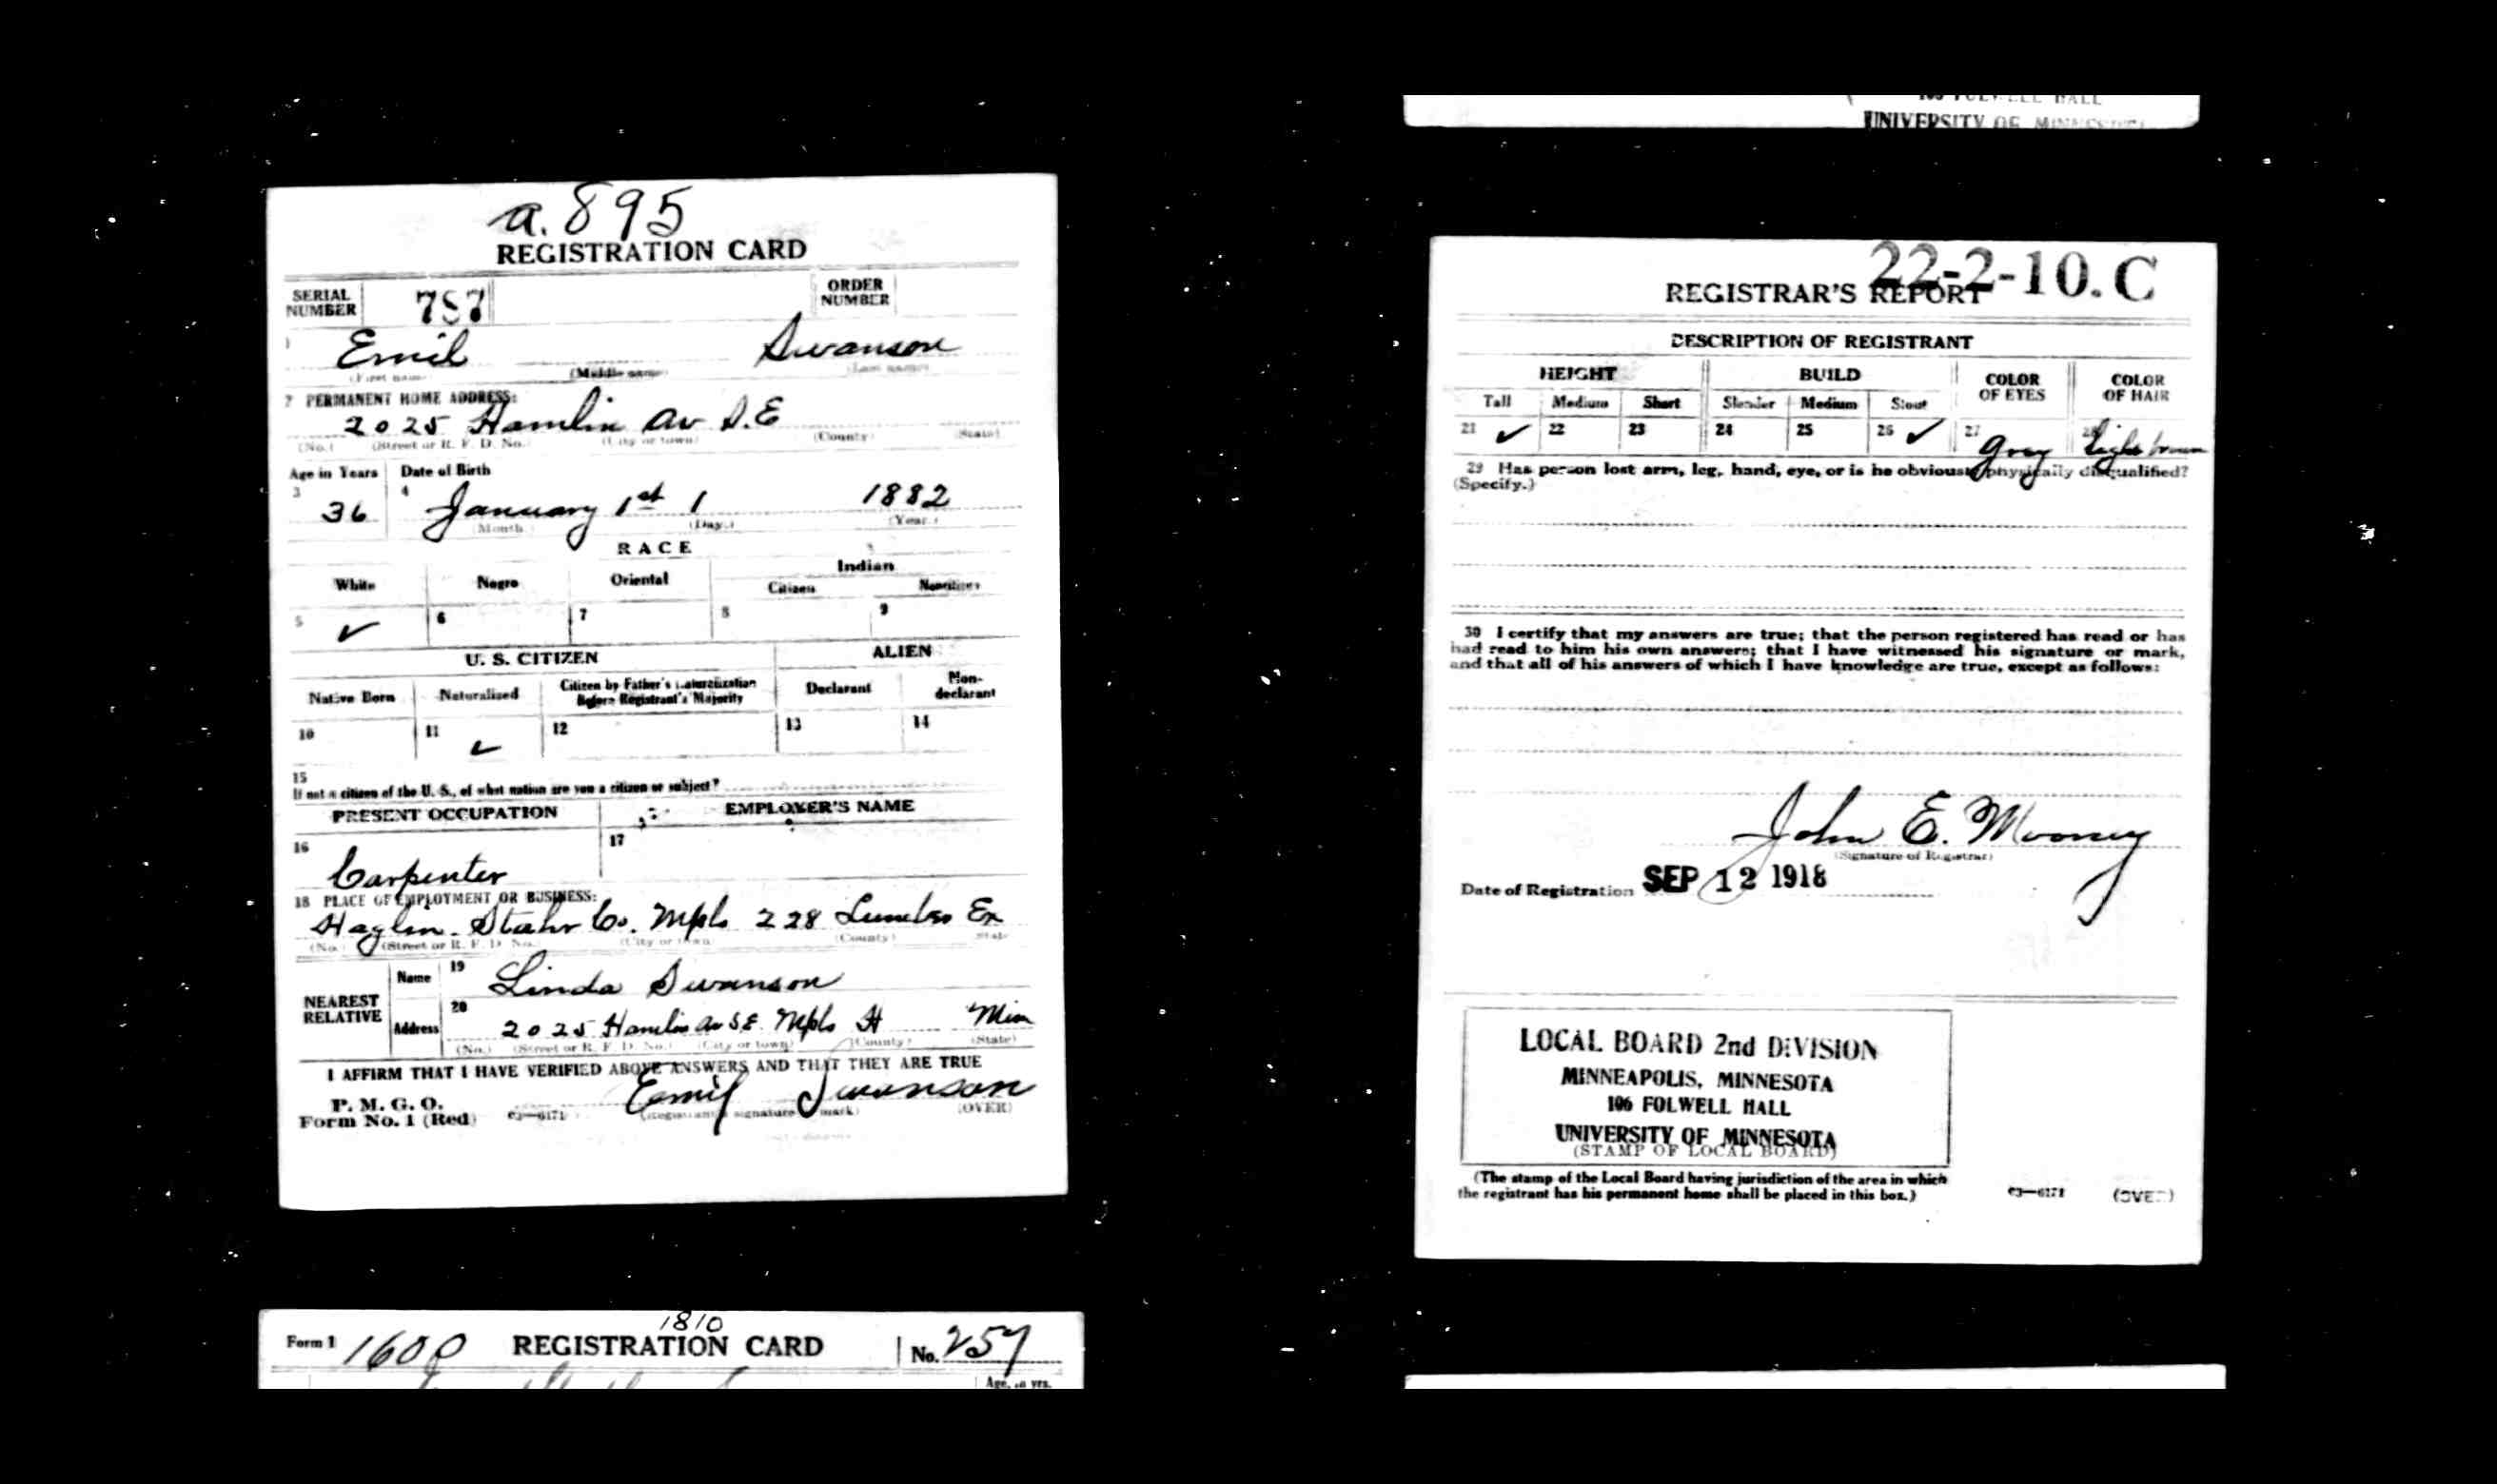 a. 895
REGISTRATION CARD
SERIAL NUMBER 787 ORDER NUMBER
1 Emil Swanson
(First name) (Middle name) (Last name)
2 PERMANENT HOME ADDRESS:
2025 Hamlin Av S.E
(No.) (Street or R. F. D. No.) (City or town) (County) (State)
Age in Years Date of Birth
3 36 4 January 1st 1 1882
(Month.) (Day.) (Year.)
RACE
White Negro Oriental Indian
Citizen Noncitizen
5 ✓ 6 7 8 9
U. S. CITIZEN ALIEN
Native Born Naturalized Citizen by Father's Naturalization Before Registrant's Majority Declarant Non-declarant
10 11 ✓ 12 13 14
15
If not a citizen of the U. S., of what nation are you a citizen or subject?
PRESENT OCCUPATION EMPLOYER'S NAME
16 Carpenter 17
18 PLACE OF EMPLOYMENT OR BUSINESS:
Haglin-Stahr Co. Mpls 228 Lumber Ex
(No.) (Street or R. F. D. No.) (City or town) (County) (State)
NEAREST RELATIVE
Name 19 Linda Swanson
Address 20 2025 Hamlin Av S.E. Mpls H Min
(No.) (Street or R. F. D. No.) (City or town) (County) (State)
I AFFIRM THAT I HAVE VERIFIED ABOVE ANSWERS AND THAT THEY ARE TRUE
P. M. G. O.
Form No. 1 (Red) 03—6171 Emil Swanson
(Registrant's signature or mark) (OVER)
Form 1 1600 1810 REGISTRATION CARD No. 257
Age, in yrs.
106 FOLWELL HALL
UNIVERSITY OF MINNESOTA
22-2-10. C
REGISTRAR'S REPORT
DESCRIPTION OF REGISTRANT
HEIGHT BUILD COLOR OF EYES COLOR OF HAIR
Tall Medium Short Slender Medium Stout
21 ✓ 22 23 24 25 26 ✓ 27 Gray 28 Light brown
29 Has person lost arm, leg, hand, eye, or is he obviously physically disqualified?
(Specify.)
30 I certify that my answers are true; that the person registered has read or has
had read to him his own answers; that I have witnessed his signature or mark,
and that all of his answers of which I have knowledge are true, except as follows:
John E. Mooney
(Signature of Registrar)
Date of Registration SEP 12 1918
LOCAL BOARD 2nd DIVISION
MINNEAPOLIS, MINNESOTA
106 FOLWELL HALL
UNIVERSITY OF MINNESOTA
(STAMP OF LOCAL BOARD)
(The stamp of the Local Board having jurisdiction of the area in which
the registrant has his permanent home shall be placed in this box.)
03—6171 (OVER)